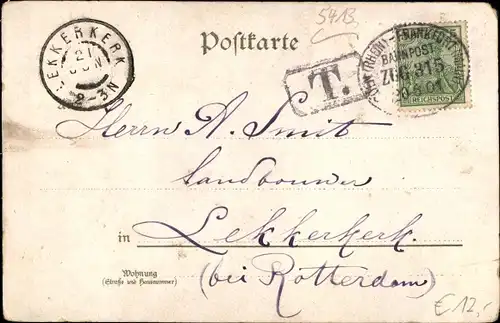 5413
Postkarte
LEKKERKERK
21 JUN
2-3N
T.
(RHÖN)-FRANKFURT (MAIN)
BAHNPOST
ZUG 315
20.6.01
REICHSPOST
Herrn A. Smit
Landbouwer
in Lekkerkerk
(bei Rotterdam)
Wohnung
(Straße und Hausnummer)
€12,-